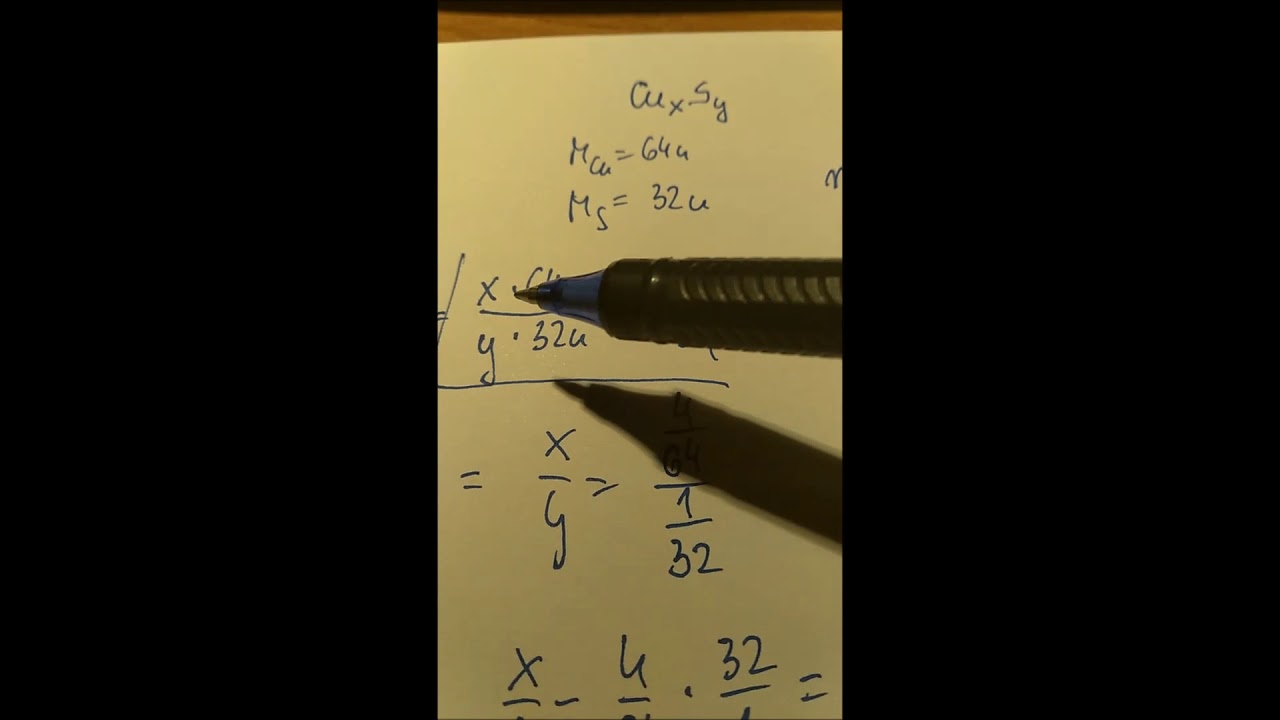 CuxSy
MCu = 64u
MS = 32u
x ·
y · 32u
= x/y = 4/64 / 1/32
x 4 · 32 =